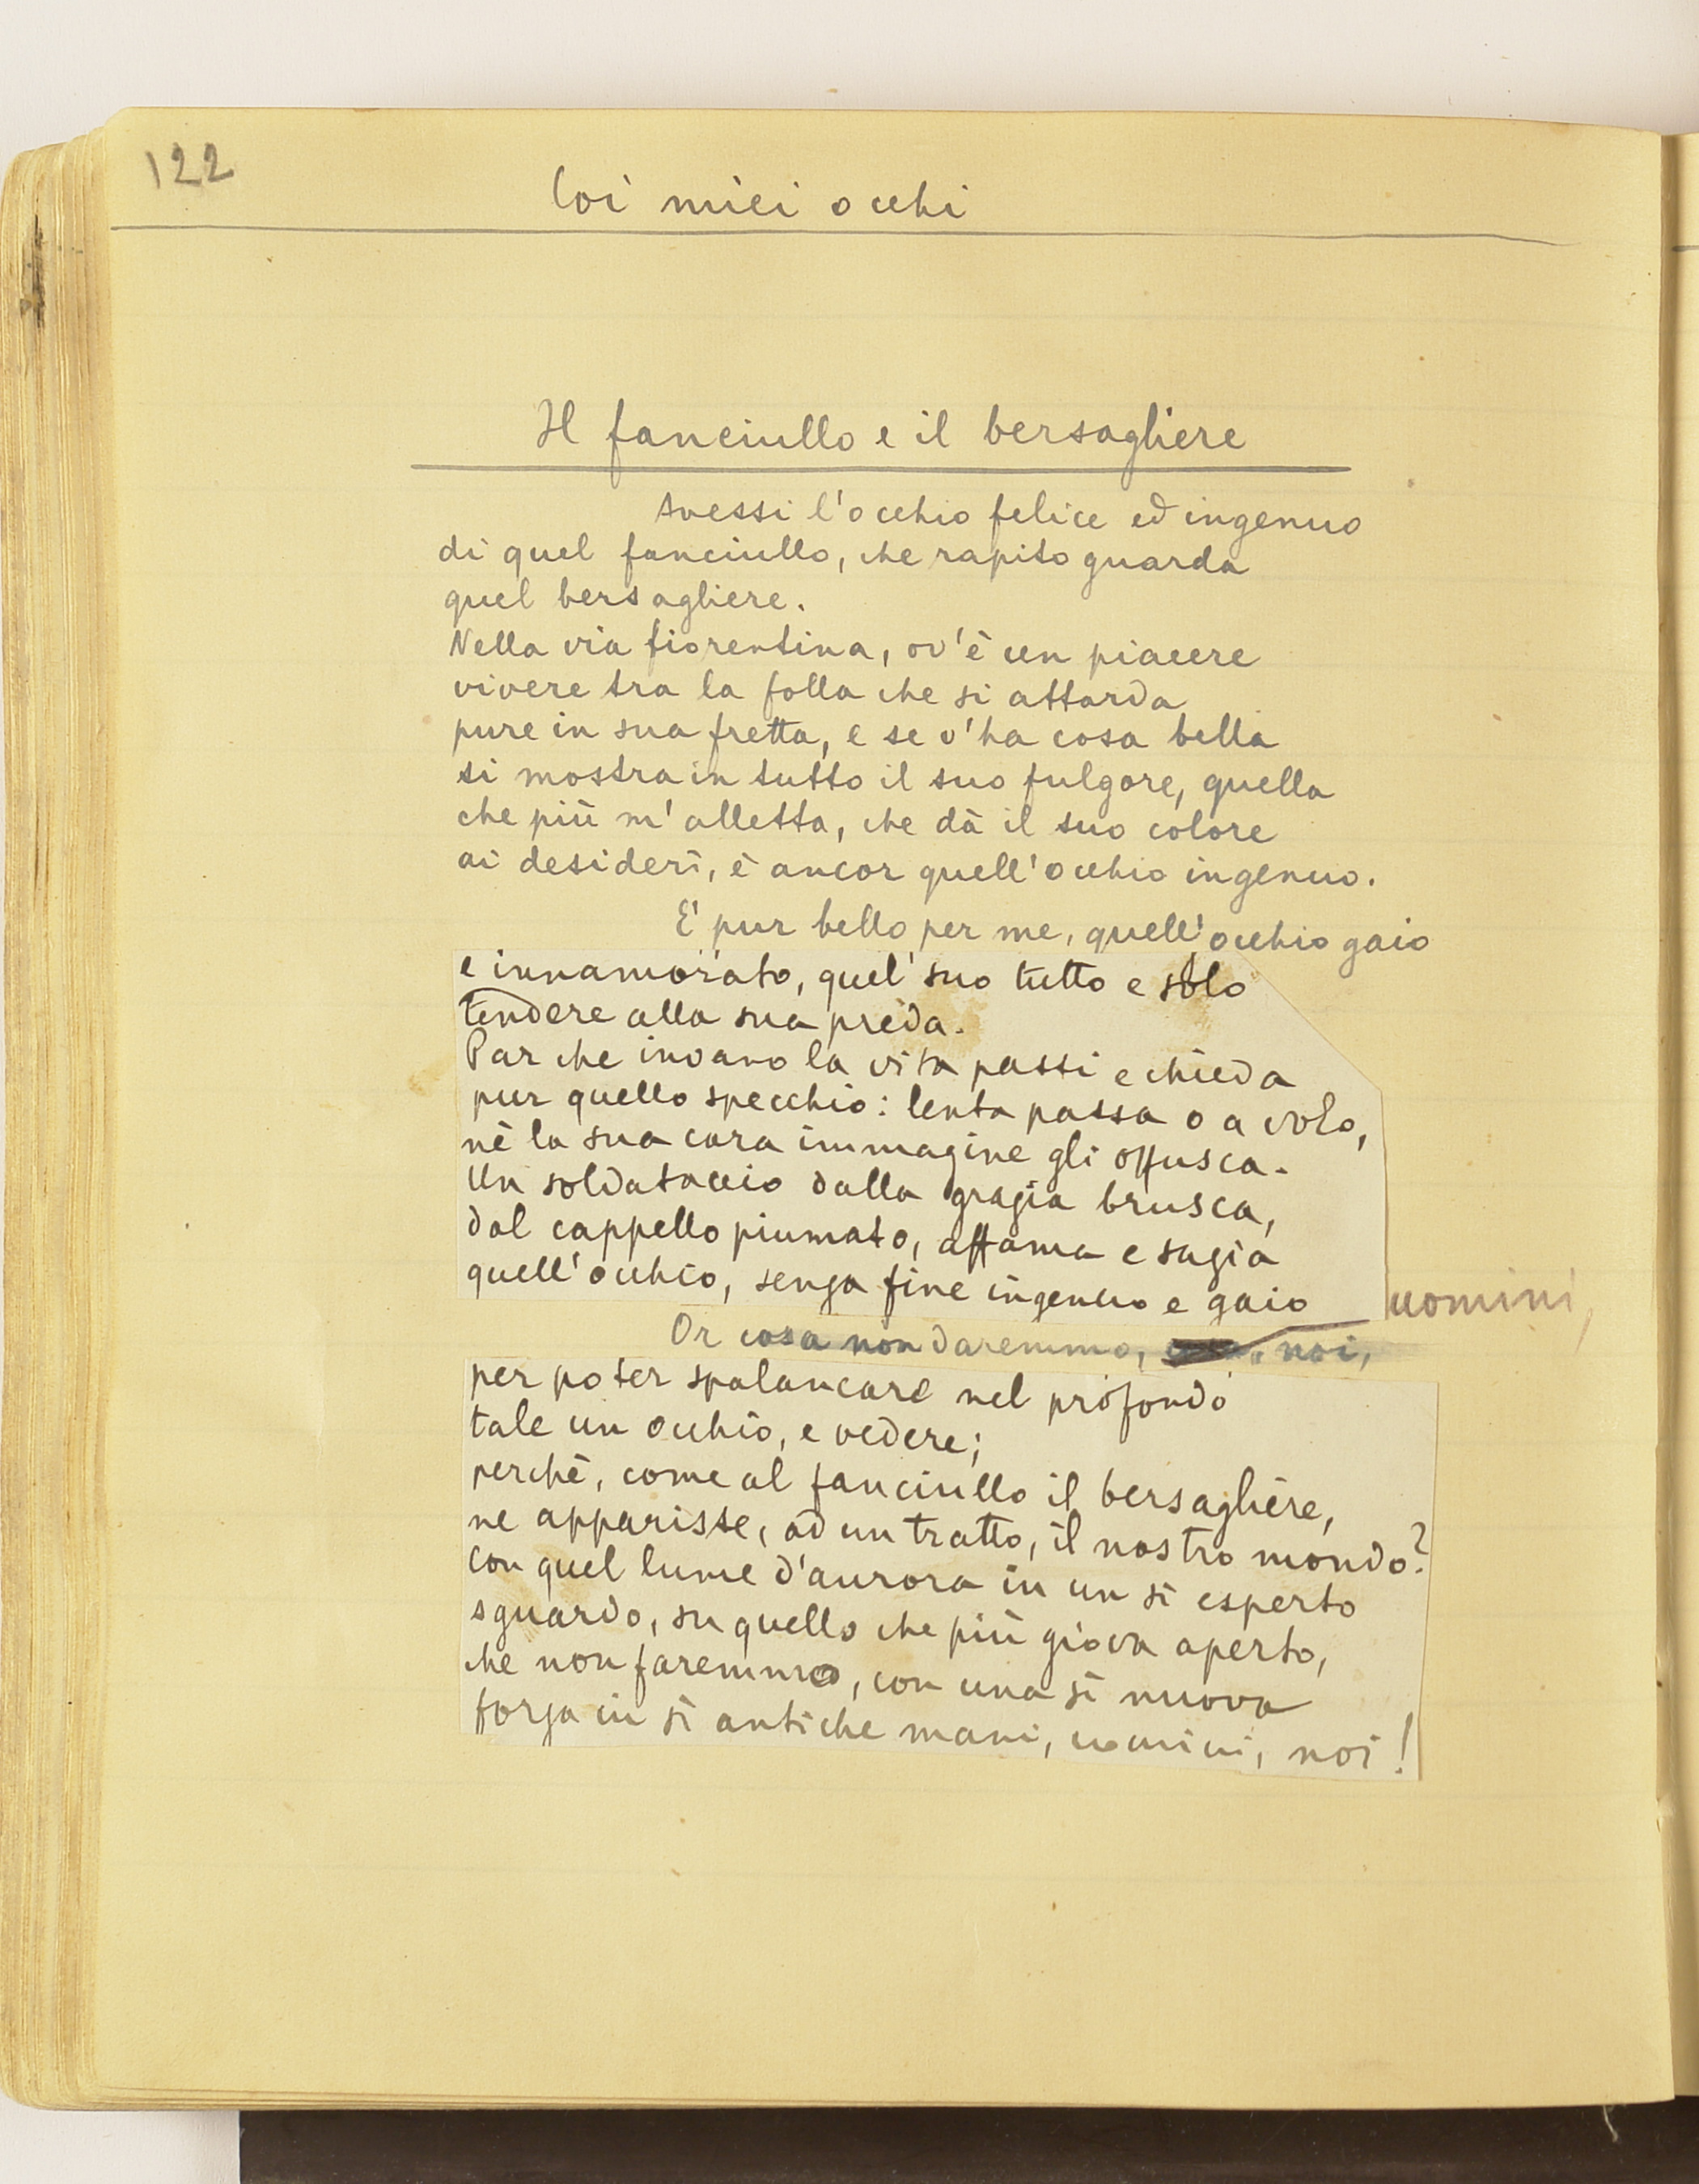 122
Coi miei occhi
Il fanciullo e il bersagliere
Avessi l'occhio felice ed ingenuo
di quel fanciullo, che rapito guarda
quel bersagliere.
Nella via fiorentina, ov'è un piacere
vivere tra la folla che si attarda
pure in sua fretta, e se v'ha cosa bella
si mostra in tutto il suo fulgore, quella
che più m'alletta, che dà il suo colore
ai desiderî, è ancor quell'occhio ingenuo.
E' pur bello per me, quell'occhio gaio
e innamorato, quel suo tutto e solo
tendere alla sua preda.
Par che invano la vita passi e chieda
pur quello specchio: lenta passa o a volo,
nè la sua cara immagine gli offusca.
Un soldataccio dalla grazia brusca,
dal cappello piumato, affama e sazia
quell'occhio, senza fine ingenuo e gaio
uomini,
Or cosa non daremmo, noi,
per poter spalancare nel profondo
tale un occhio, e vedere;
perchè, come al fanciullo il bersagliere,
ne apparisse, ad un tratto, il nostro mondo?
Con quel lume d'aurora in un sì esperto
sguardo, su quello che più giova aperto,
che non faremmo, con una sì nuova
forza in sì antiche mani, uomini, noi!